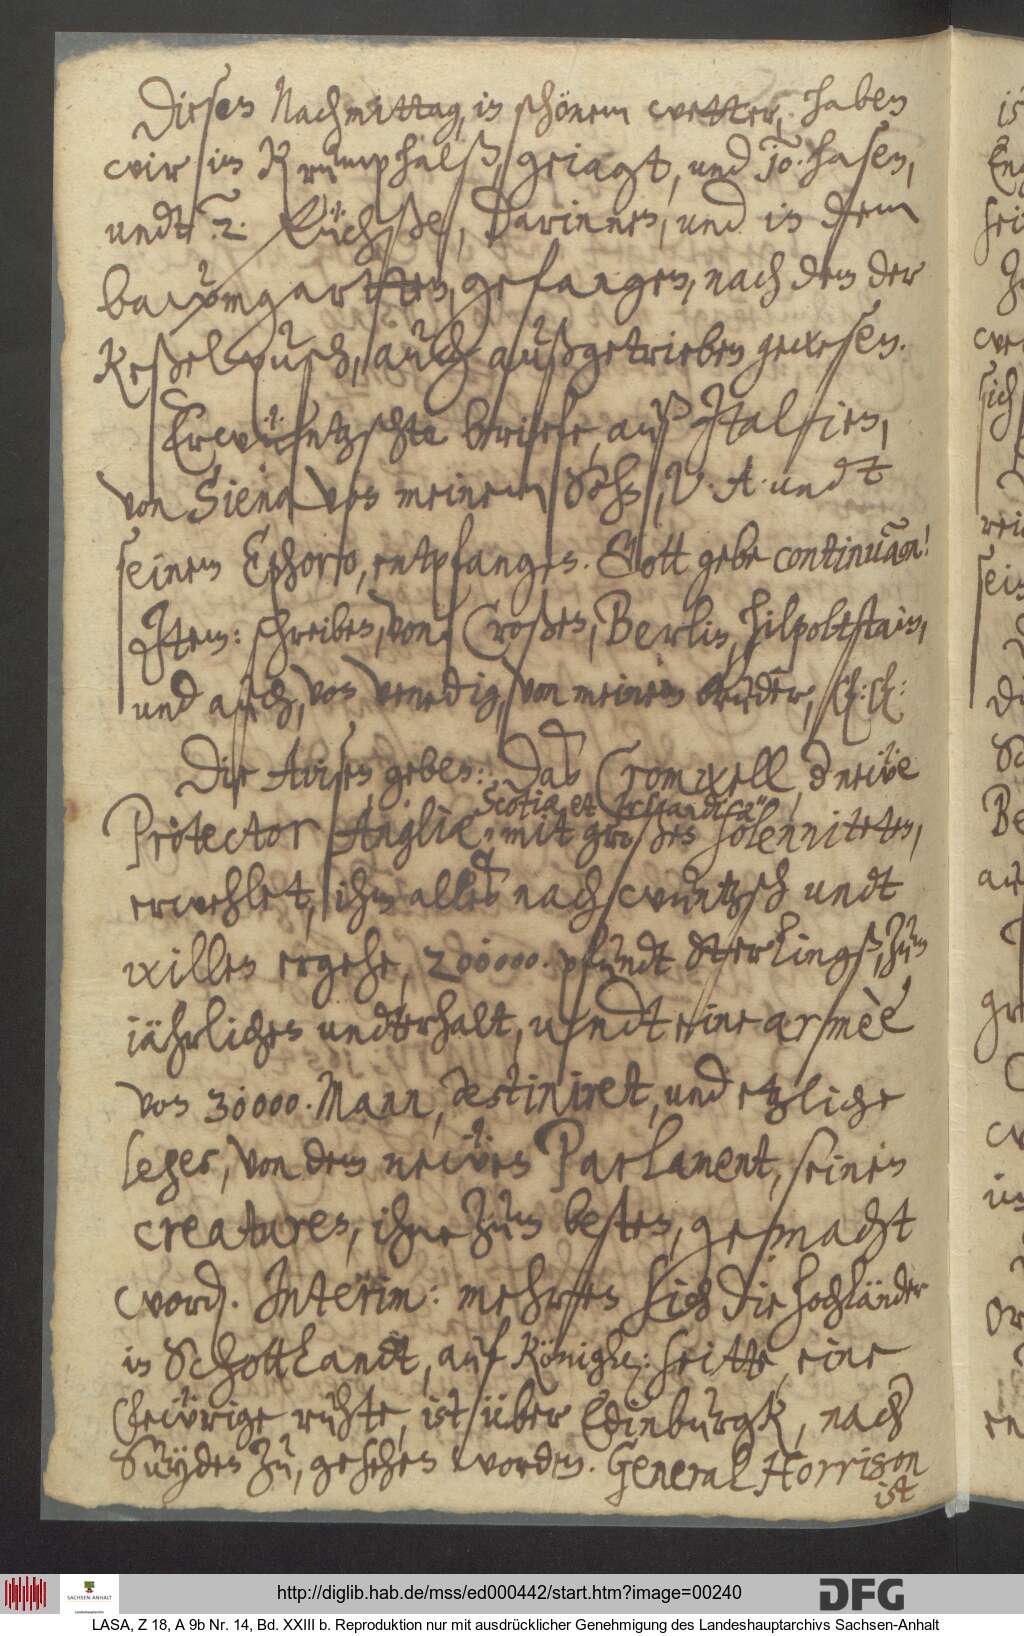 Diesen Nachmittag, in schönem wetter, haben
wir im Krumphalß, geiagt, und 10. hasen,
undt 2. Füchße, darinnen, und in dem
bawmgartten, gefangen, nach dem der
Keßelpusch, auch außgetrieben gewesen.
Erwüntzschte briefe, auß Italien,
von Siena von meinem Sohn, V. A. undt
seinem Ephoro, entpfangen. Gott gebe continuãon!
Item: schreiben, von Croßen, Berlin, hilpoltstain,
und auch, von Venedig, von meinem bruder,
Die Avisen geben: Daß Cromwell, d newe
Scotiæ, et Irlandiæ
Protector Angliæ, mit großen solenniteten,
erwehlet, ihm alles nach wuntzsch undt
willen ergehe, 200000. pfundt Sterlingß, zum
iährlichen undterhalt, undt eine armèe
von 30000. Mann, destiniret, und etzliche
leges, von dem newen Parlament, seinen
creaturen, ihme zum besten, gemacht
word. Interim: mehren sich die hochländer
in Schottlandt, auf Königl: seitte, eine
fewrige ruhte, ist über Edinburgk, nach
Suyden zu, gesehen worden. General Horrison
ist
http://diglib.hab.de/mss/ed000442/start.htm?image=00240
DFG
SACHSEN-ANHALT
LASA, Z 18, A 9b Nr. 14, Bd. XXIII b. Reproduktion nur mit ausdrücklicher Genehmigung des Landeshauptarchivs Sachsen-Anhalt